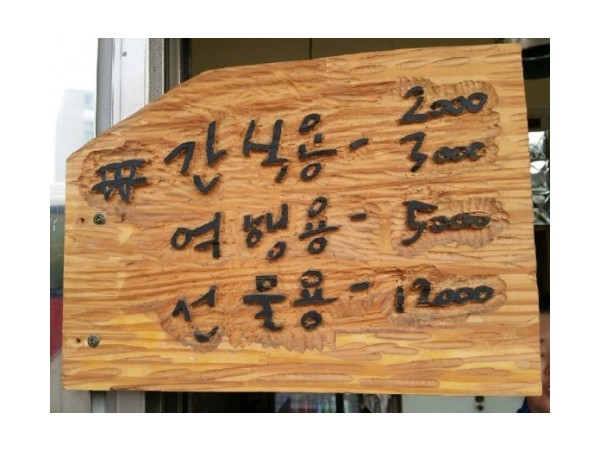 2000
# 간식용 - 3000
여행용 - 5000
선물용 - 12000